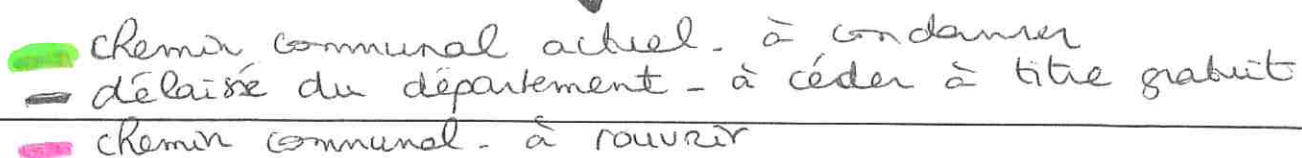 chemin communal actuel - à condamner
délaissé du département - à céder à titre gratuit
chemin communal - à rouvrir